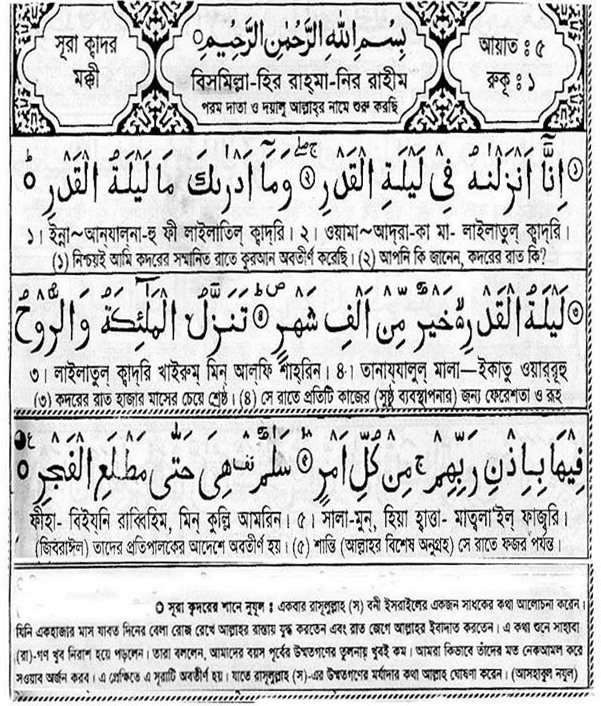 সূরা ক্বাদর
মক্কী
بِسْمِ اللّٰهِ الرَّحْمٰنِ الرَّحِيْمِ
বিসমিল্লা-হির রাহ্মা-নির রাহীম
পরম দাতা ও দয়ালু আল্লাহর নামে শুরু করছি
আয়াত : ৫
রুকূ : ১
اِنَّاۤ اَنْزَلْنٰهُ فِيْ لَيْلَةِ الْقَدْرِ وَمَاۤ اَدْرٰىكَ مَا لَيْلَةُ الْقَدْرِ
১। ইন্না~আন্‌যালনা-হু ফী লাইলাতিল্ ক্বাদ্‌রি। ২। ওয়ামা~আদ্‌রা-কা মা- লাইলাতুল্ ক্বাদ্‌রি।
(১) নিশ্চয়ই আমি কদরের সম্মানিত রাতে কুরআন অবতীর্ণ করেছি। (২) আপনি কি জানেন, কদরের রাত কি?
لَيْلَةُ الْقَدْرِ خَيْرٌ مِّنْ اَلْفِ شَهْرٍ تَنَزَّلُ الْمَلٰٓئِكَةُ وَالرُّوْحُ
৩। লাইলাতুল্ ক্বাদ্‌রি খাইরুম্ মিন্ আল্‌ফি শাহ্‌রিন। ৪। তানায্‌যালুল্ মালা—ইকাতু ওয়ার্‌রূহু
(৩) কদরের রাত হাজার মাসের চেয়ে শ্রেষ্ঠ। (৪) সে রাতে প্রতিটি কাজের (সুষ্ঠু ব্যবস্থাপনার) জন্য ফেরেশতা ও রূহ
فِيْهَا بِاِذْنِ رَبِّهِمْ مِنْ كُلِّ اَمْرٍ سَلٰمٌ هِىَ حَتّٰى مَطْلَعِ الْفَجْرِ
ফীহা- বিইয্‌নি রাব্বিহিম্, মিন্ কুল্লি আম্‌রিন। ৫। সালা-মুন্, হিয়া হাত্তা- মাত্বলা'ইল্ ফাজ্‌রি।
(জিবরাঈল) তাদের প্রতিপালকের আদেশে অবতীর্ণ হয়। (৫) শান্তি (আল্লাহর বিশেষ অনুগ্রহ) সে রাতে ফজর পর্যন্ত।
সূরা কৃদরের শানে নুযূল : একবার রাসূলুল্লাহ (স) বনী ইসরাইলের একজন সাধকের কথা আলোচনা করেন।
যিনি একহাজার মাস যাবত দিনের বেলা রোজ রেখে আল্লাহর রাস্তায় যুদ্ধ করতেন এবং রাত জেগে আল্লাহর ইবাদাত করতেন। এ কথা শুনে সাহাবা
(রা)-গণ খুব নিরাশ হয়ে পড়লেন। তারা বললেন, আমাদের বয়স পূর্বের উম্মতগণের তুলনায় খুবই কম। আমরা কিভাবে তাঁদের মত নেকআমল করে
সওয়াব অর্জন করব। এ প্রেক্ষিতে এ সূরাটি অবতীর্ণ হয়। যাতে রাসূলুল্লাহ (স)-এর উম্মতগণের মর্যাদার কথা আল্লাহ ঘোষণা করেন। (আসহাবুল নযূল)